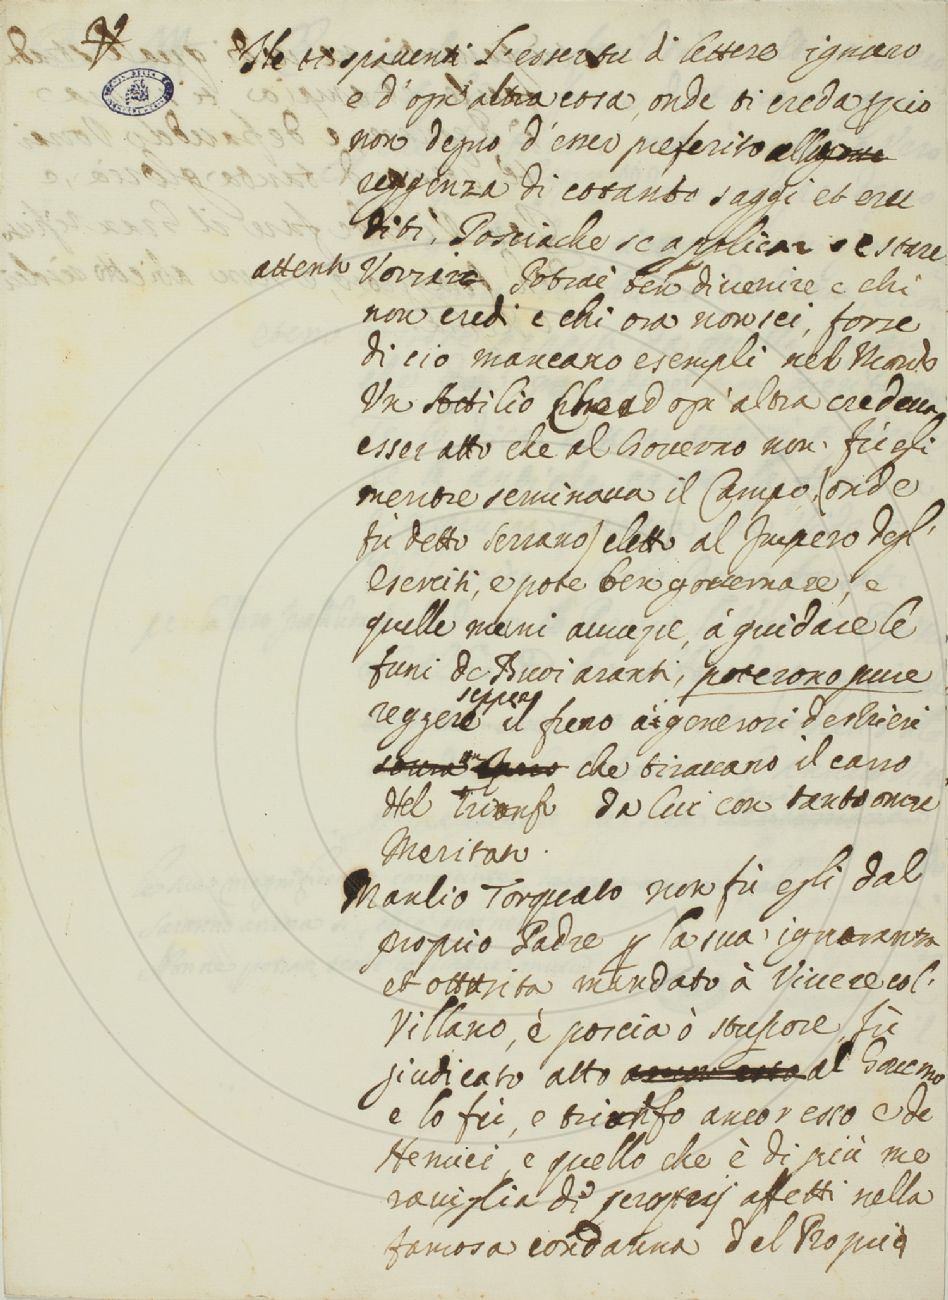 Ne ti spaventi l'essertu di lettere ignaro
e d'ogn'altra cosa, onde ti creda
non degno d'esser preferito alla
reggenza di cotanto saggi et eru
diti, Posciache se applicar e stare
attento Vorrai Potrai ben divenire e chi
non credi e chi ora non sei, forse
di cio mancano esempli nel Mondo
Un Attilio che ad ogn'altra credeva
esser atto che al Governo non fù egli
mentre seminava il Campo, (onde
fù detto Serrano) eletto al Impero degl'
Eserciti, e pote ben governare, e
quelle mani avvezze, à guidare le
funi de Buoi aranti, poterono pure
reggere il freno a i generosi destrieri
che tiravano il carro
del Trionfo da lui con tanto onore
Meritato.
Manlio Torquato non fù egli dal
proprio Padre p la sua ignoranza
et mandato à Vivere col
Villano, è poscia ò stupore, fù
giudicato atto al Governo
e lo fù, e trionfo ancor esso de
Nemici, e quello che è di più me
raviglia di proprij affetti nella
famosa condanna del Proprio